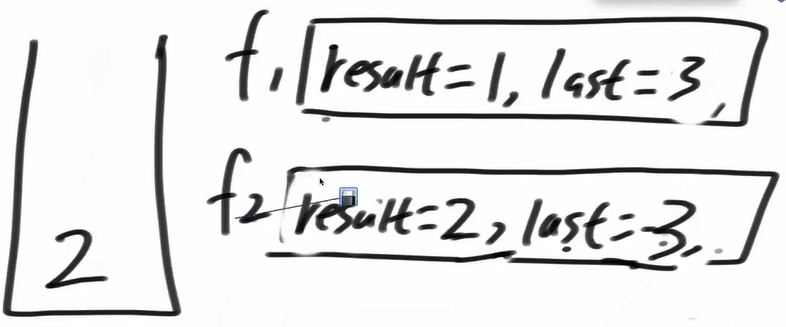 f1 result=1, last=3,
f2 result=2, last=3,
2